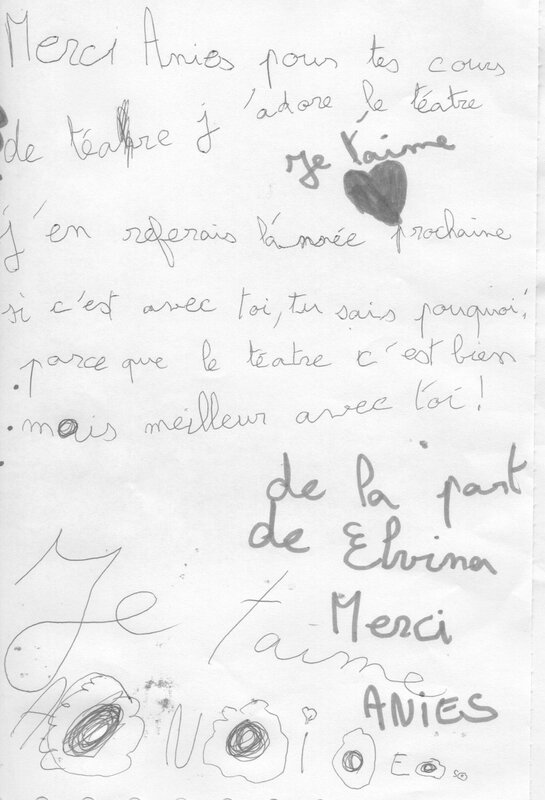 Merci Anies pour tes cours
de téatre j'adore le téatre
je t'aime
j'en referais l'année prochaine
si c'est avec toi, tu sais pouquoi:
parce que le téatre c'est bien
mais meilleur avec toi!
de la part
de Elvina
Merci
Je t'aime
ANIES
A N i E